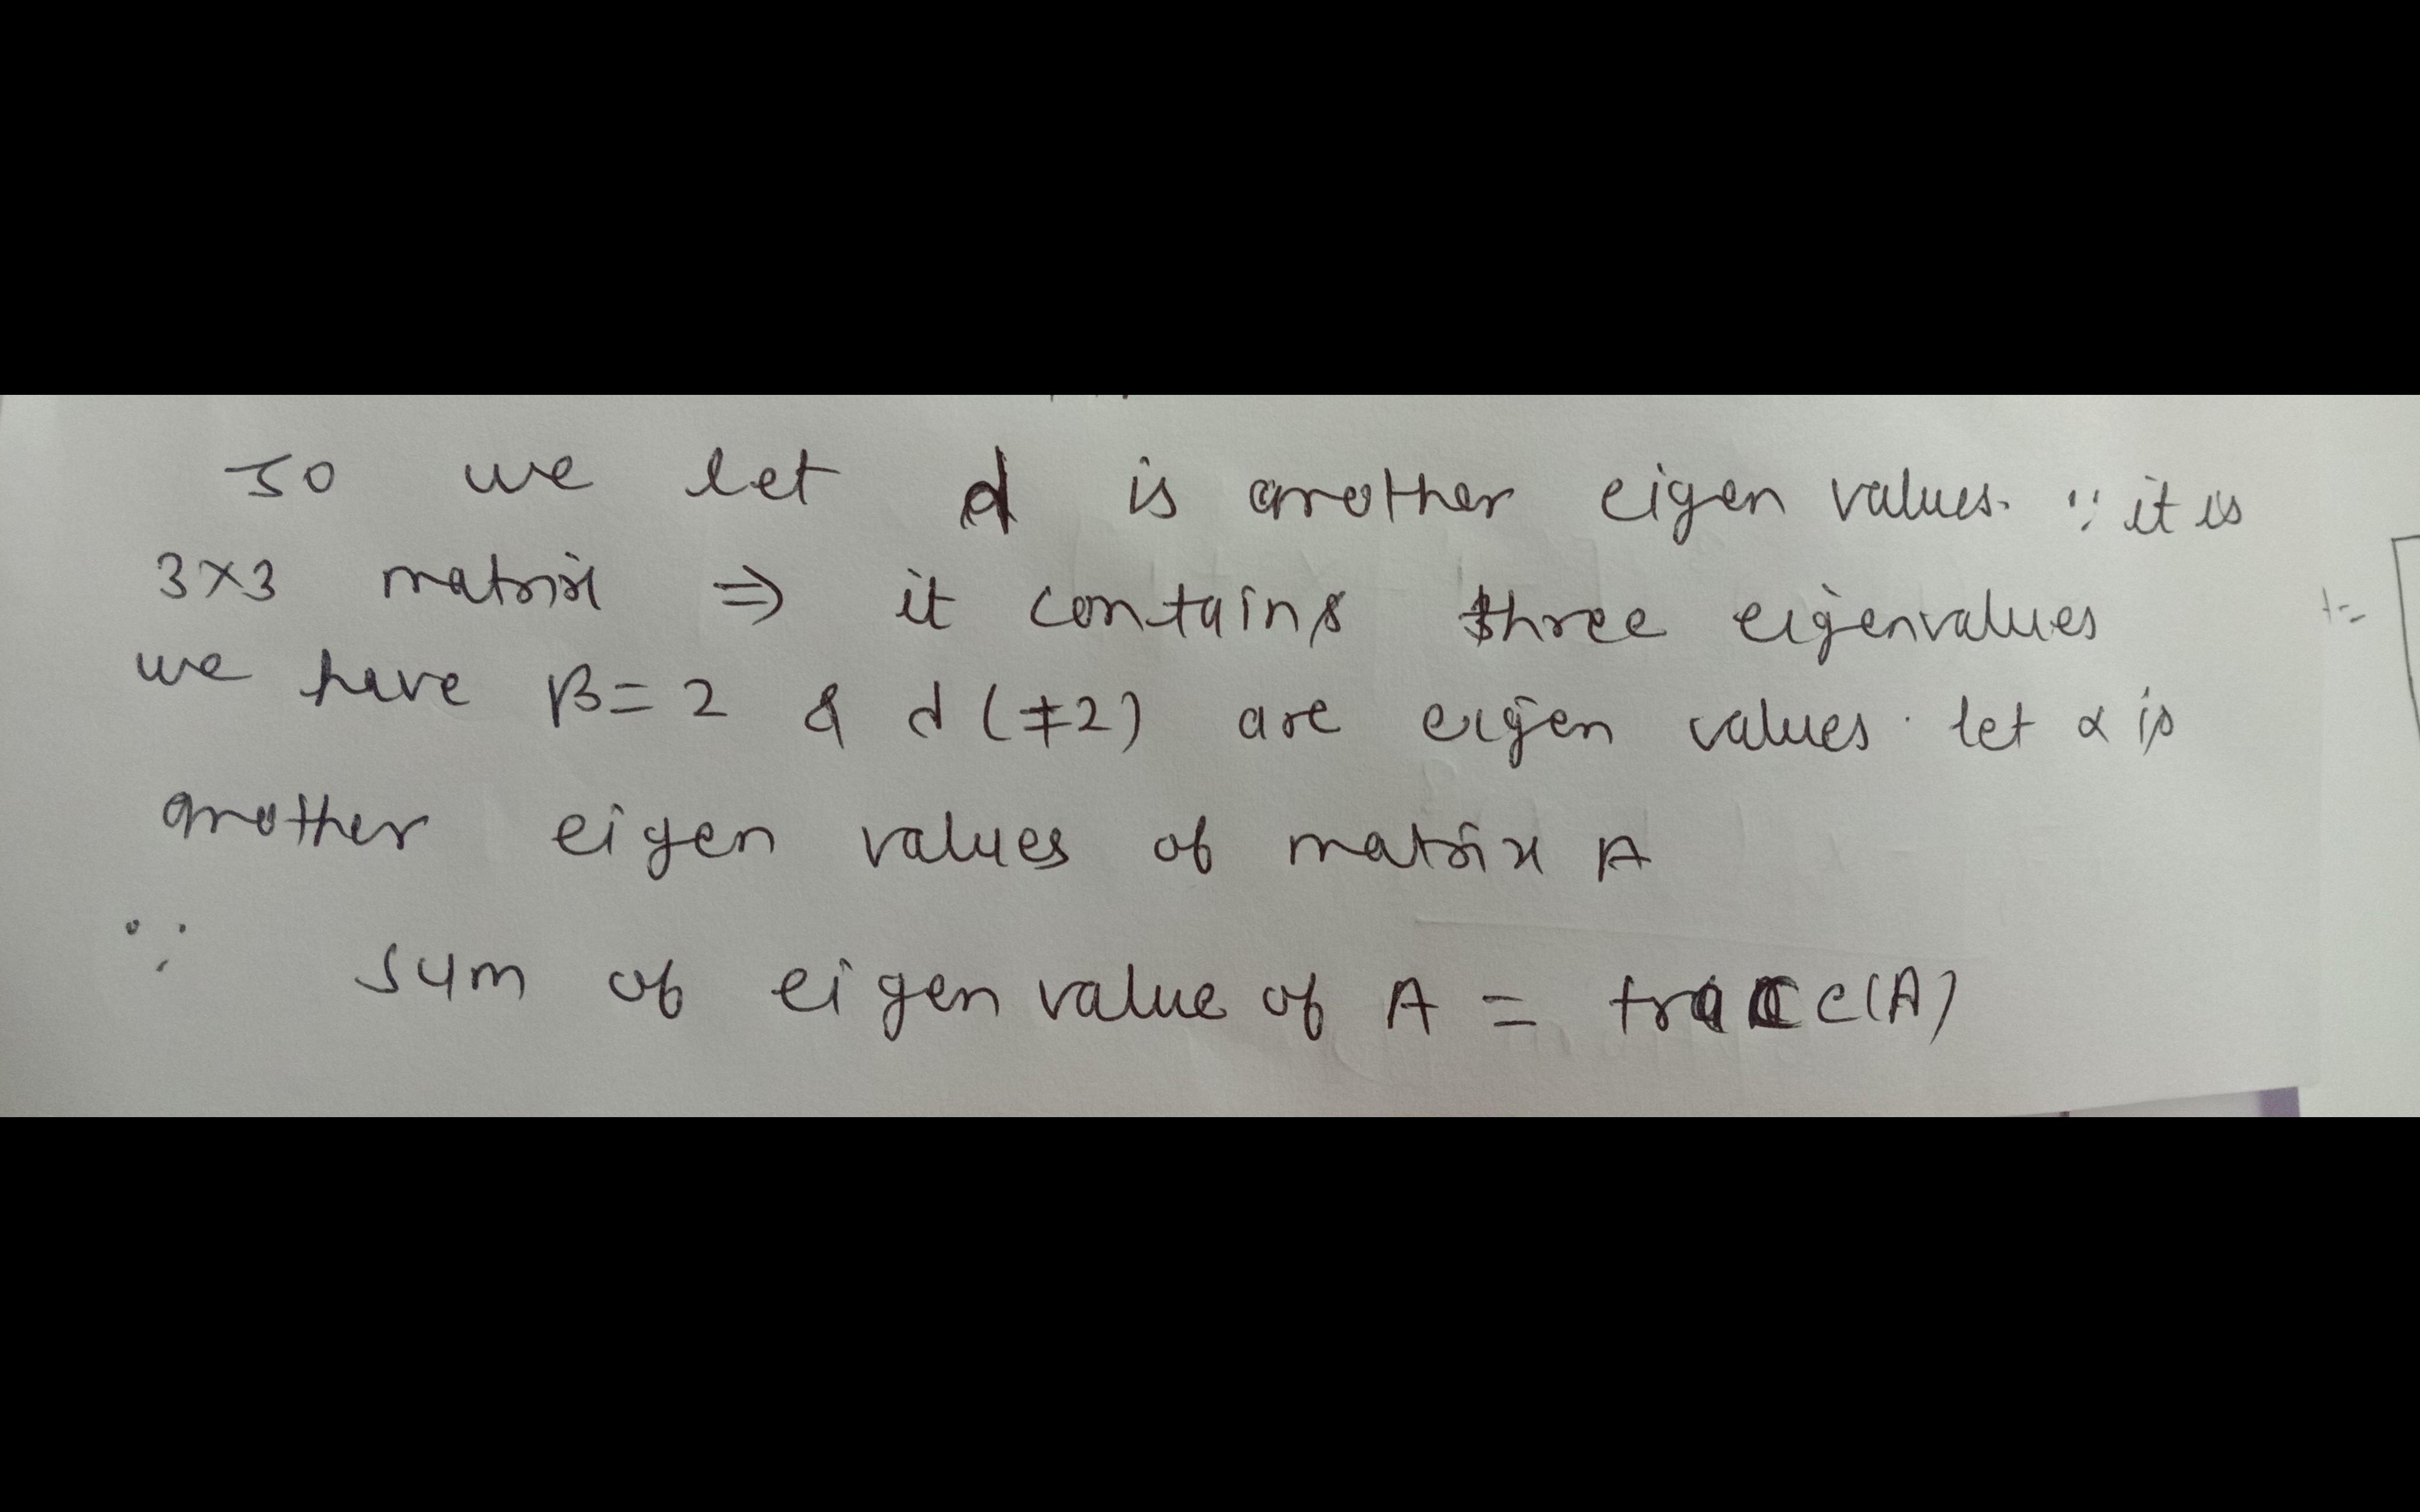 So we let d is another eigen values. ∵ it is
3×3 matrix ⇒ it contains three eigenvalues
we have β=2 & d(≠2) are eigen values. let α is
another eigen values of matrix A
∵ sum of eigen value of A = trace(A)